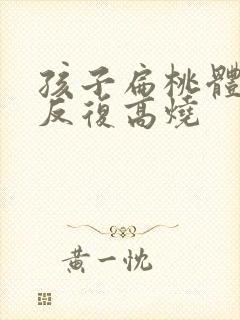 孩子扁桃體
反復高燒
黃一忱